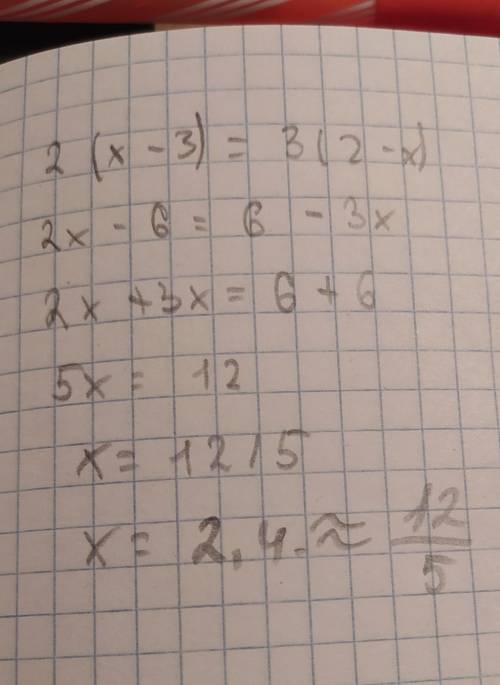 2 (x - 3) = 3 (2 - x)
2x - 6 = 6 - 3x
2x + 3x = 6 + 6
5x = 12
x = 12 / 5
x = 2.4. ≈ 12/5